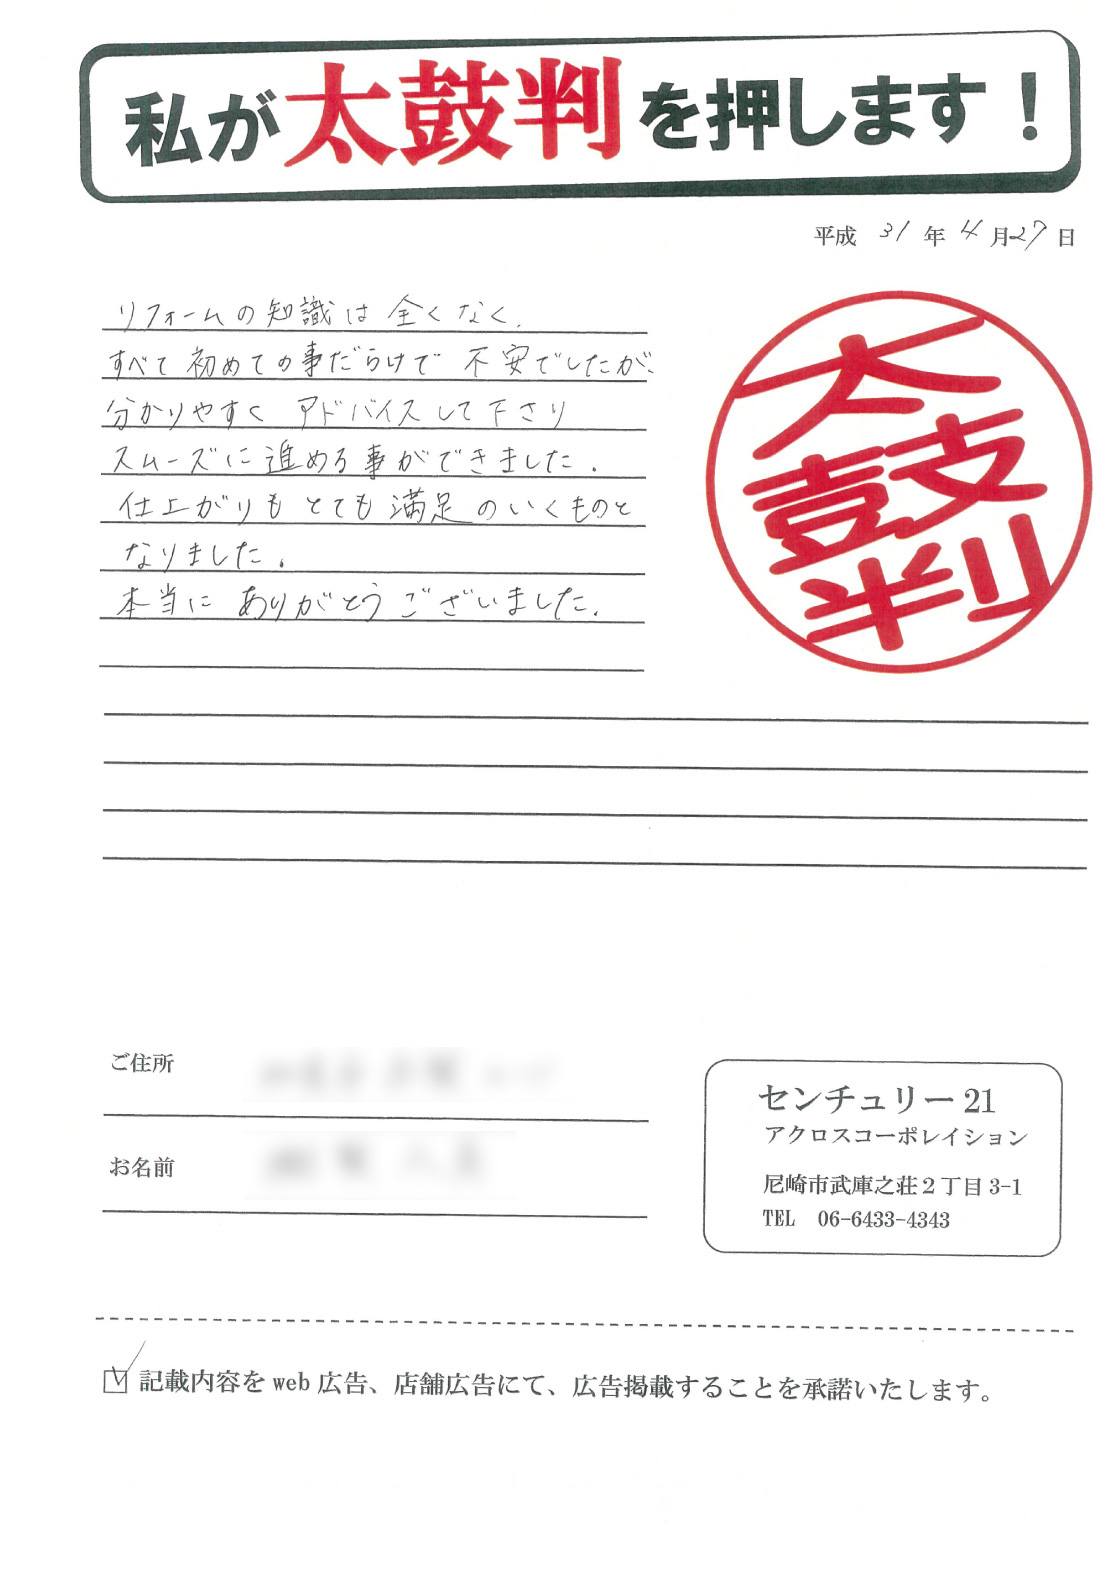 私が太鼓判を押します！
平成 31 年 4 月 27 日
リフォームの知識は全くなく、
すべて初めての事だらけで不安でしたが、
分かりやすくアドバイスして下さり
スムーズに進める事ができました。
仕上がりもとても満足のいくものと
なりました。
本当にありがとうございました。
太
鼓
判
ご住所
お名前
センチュリー 21
アクロスコーポレイション
尼崎市武庫之荘２丁目 3-1
TEL 06-6433-4343
記載内容を web 広告、店舗広告にて、広告掲載することを承諾いたします。